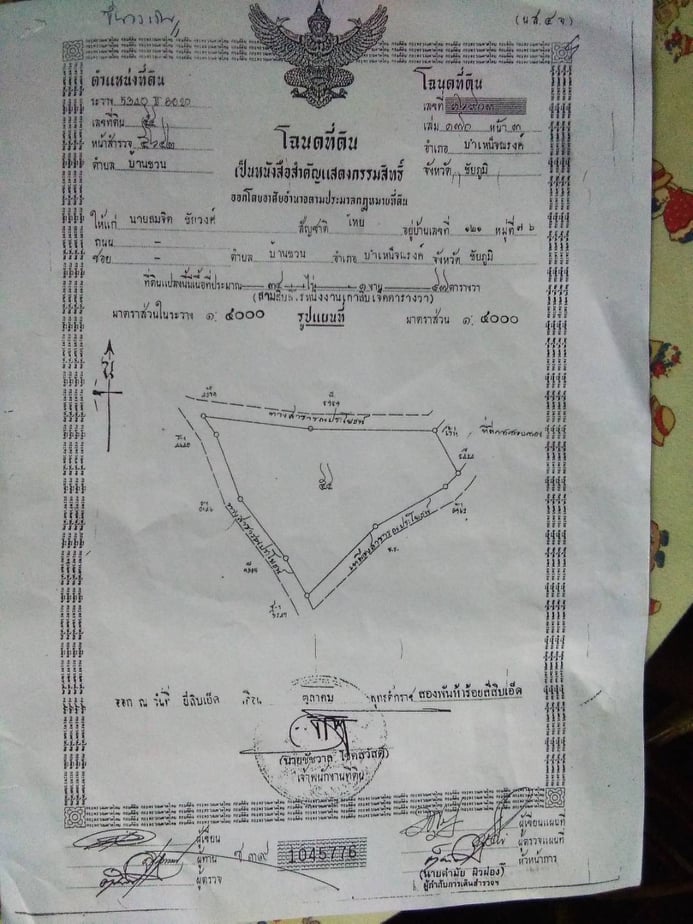 (น.ส. ๔ จ)
ตำแหน่งที่ดิน
ระวาง
เลขที่ดิน ๕๔
หน้าสำรวจ
ตำบล บ้านชวน
โฉนดที่ดิน
เลขที่
เล่ม ๑๗๐ หน้า ๓
อำเภอ บำเหน็จณรงค์
จังหวัด ชัยภูมิ
โฉนดที่ดิน
เป็นหนังสือสำคัญแสดงกรรมสิทธิ์
ออกโดยอาศัยอำนาจตามประมวลกฎหมายที่ดิน
ให้แก่ นายสมจิต ชัยวงศ์ สัญชาติ ไทย อยู่บ้านเลขที่ ๑๒๑ หมู่ที่
ถนน –
ซอย – ตำบล บ้านชวน อำเภอ บำเหน็จณรงค์ จังหวัด ชัยภูมิ
ที่ดินแปลงนี้มีเนื้อที่ประมาณ ๓๔ ไร่ ๑ งาน ๙๗ ตารางวา
(สามสิบสี่ไร่หนึ่งงานเก้าสิบเจ็ดตารางวา)
มาตราส่วนในระวาง ๑: ๔๐๐๐ รูปแผนที่ มาตราส่วน ๑: ๔๐๐๐
น
ทางสาธารณประโยชน์
๕๔
ทางสาธารณประโยชน์
ทางสาธารณประโยชน์
ออก ณ วันที่ ยี่สิบเอ็ด เดือน ตุลาคม พุทธศักราช สองพันห้าร้อยสี่สิบเอ็ด
(นายชัชวาล โชตสวัสดิ์)
เจ้าพนักงานที่ดิน
ผู้เขียน
ผู้ทาน
ผู้ตรวจ
1045776
ผู้เขียนแผนที่
ผู้ตรวจแผนที่
หัวหน้าการ
(นายคำมัย ผิวผ่อง)
ผู้กำกับการเดินสำรวจฯ